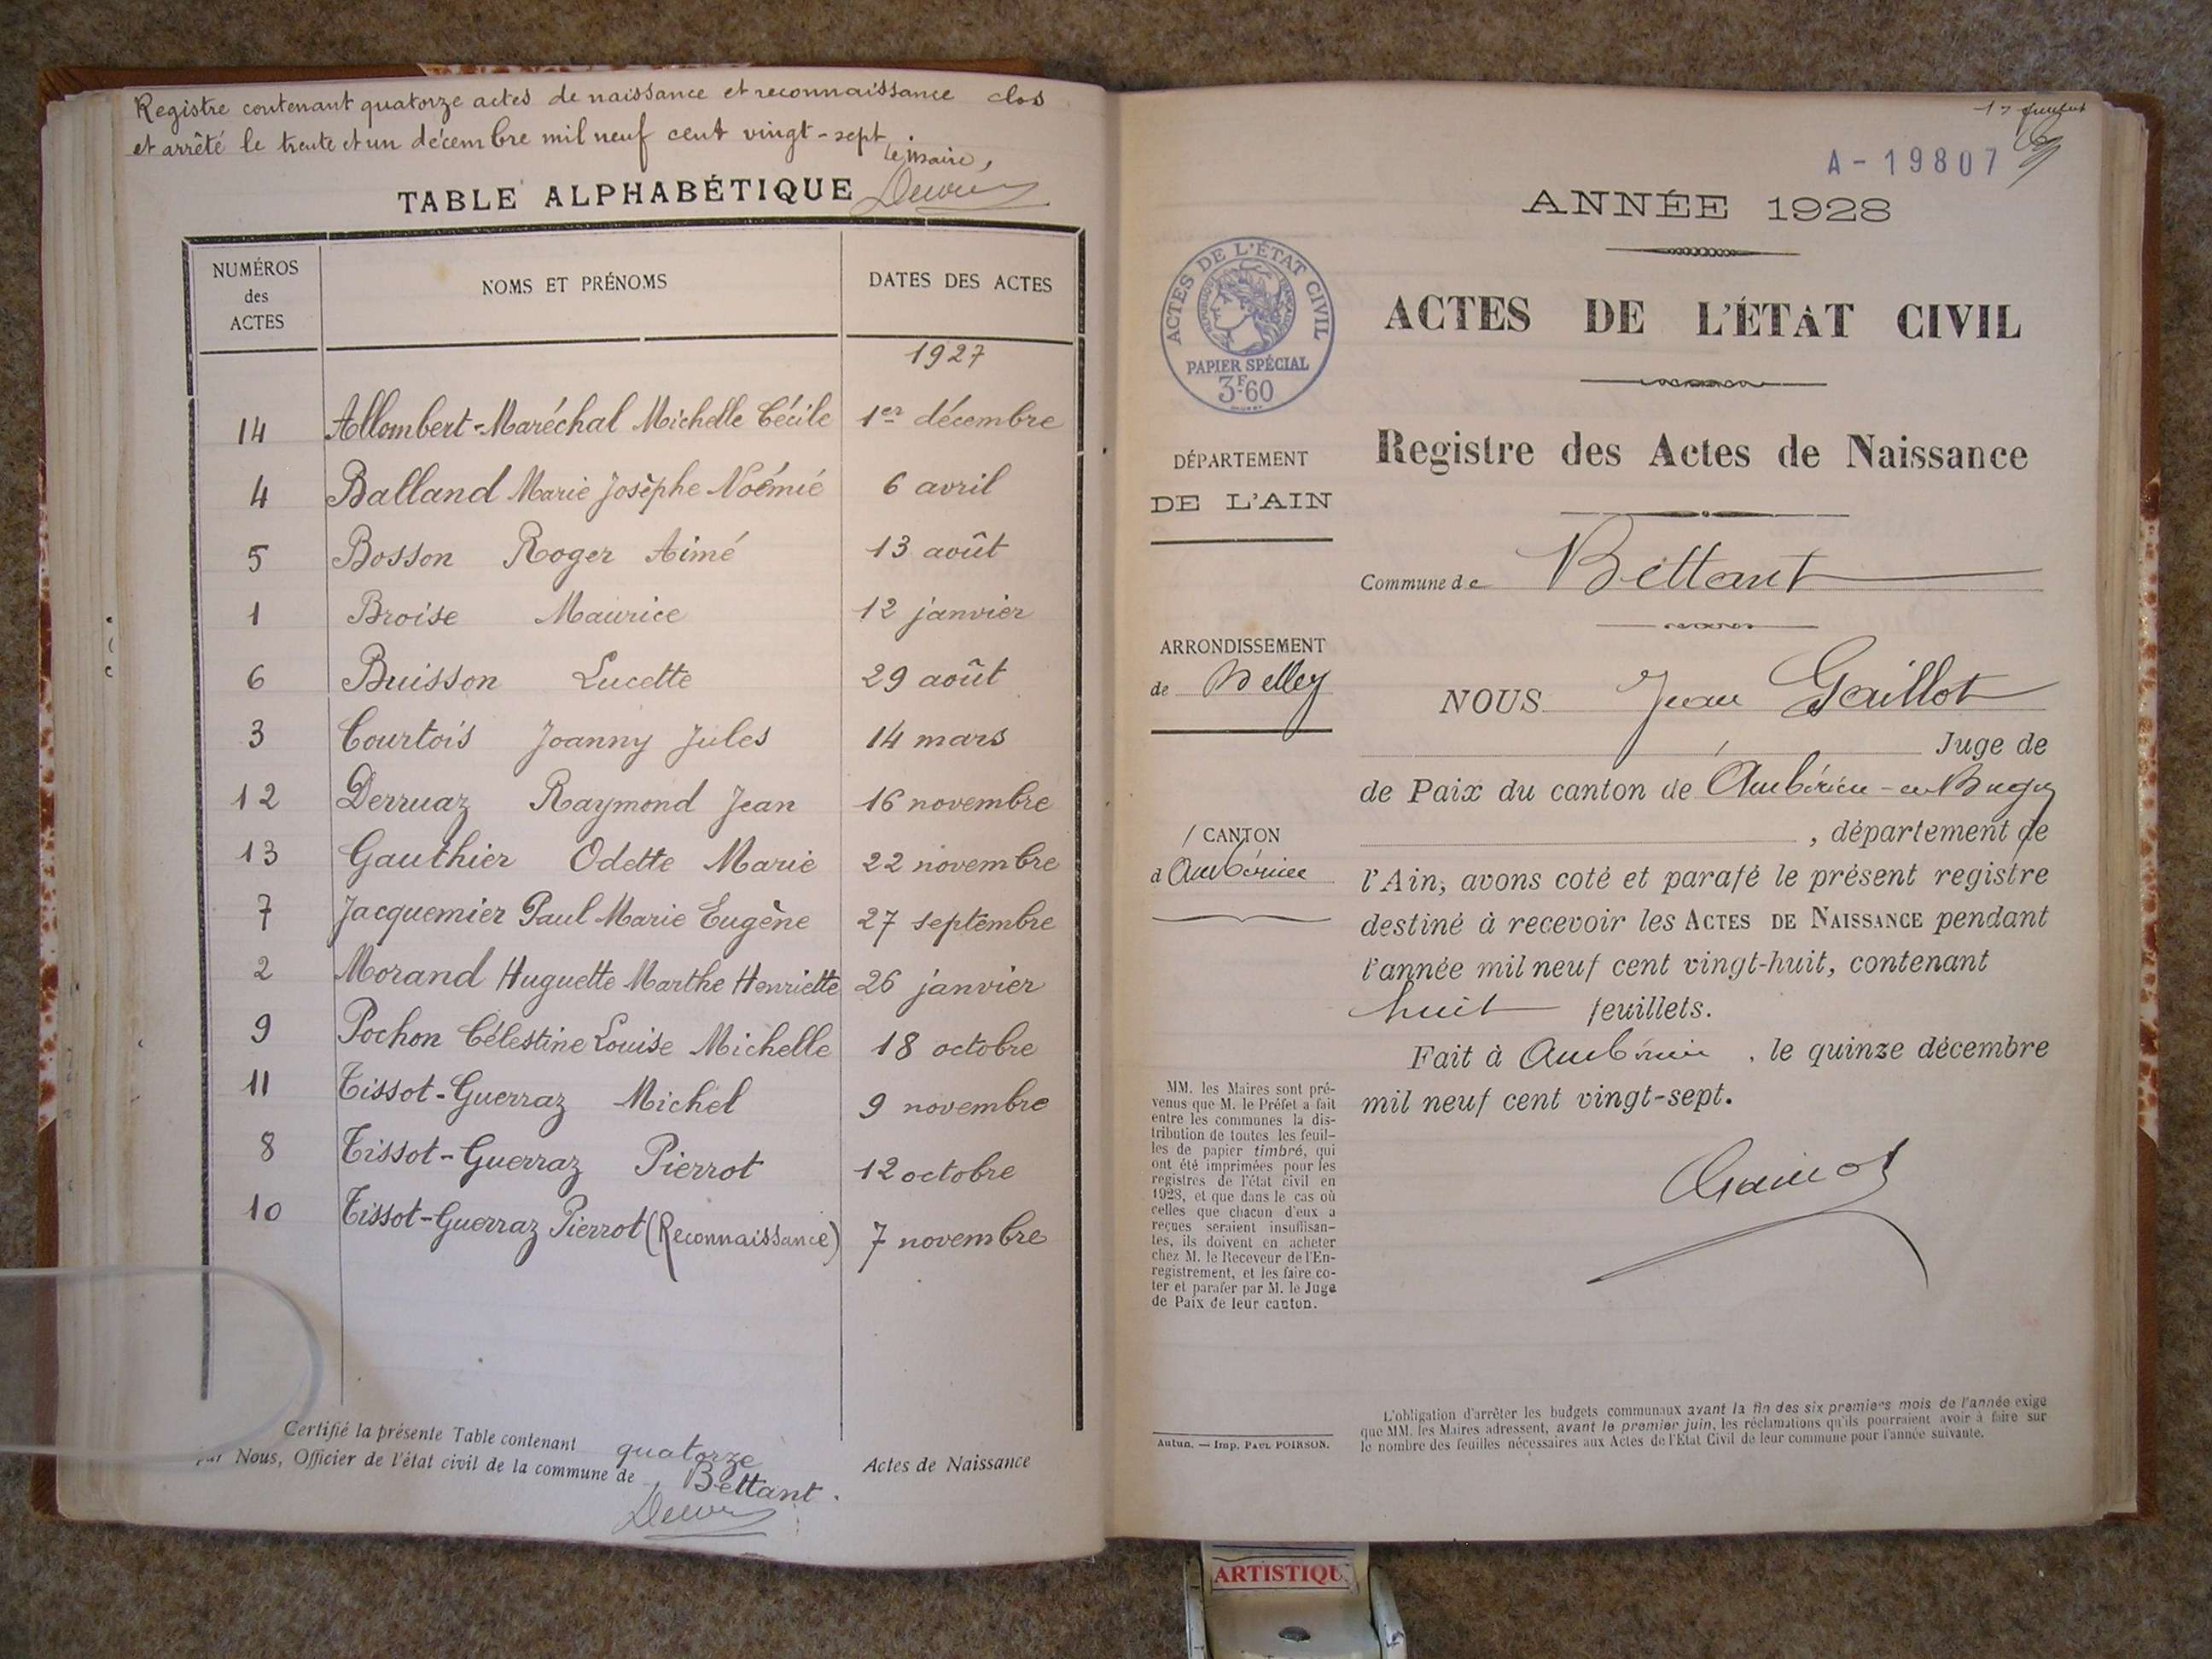 Registre contenant quatorze actes de naissance et reconnaissance clos
et arrêté le trente et un décembre mil neuf cent vingt-sept,
Le Maire,
TABLE ALPHABÉTIQUE
NUMÉROS des ACTES NOMS ET PRÉNOMS DATES DES ACTES
1927
14 Allombert-Maréchal Michelle Cécile 1er décembre
4 Balland Marie Josèphe Noémie 6 avril
5 Bosson Roger Aimé 13 août
1 Broise Maurice 12 janvier
6 Buisson Lucette 29 août
3 Courtois Joanny Jules 14 mars
12 Derruaz Raymond Jean 16 novembre
13 Gauthier Odette Marie 22 novembre
7 Jacquemier Paul Marie Eugène 27 septembre
2 Morand Huguette Marthe Henriette 26 janvier
9 Pochon Célestine Louise Michelle 18 octobre
11 Tissot-Guerraz Michel 9 novembre
8 Tissot-Guerraz Pierrot 12 octobre
10 Tissot-Guerraz Pierrot (Reconnaissance) 7 novembre
Certifié la présente Table contenant quatorze Actes de Naissance
par Nous, Officier de l'état civil de la commune de Bettant.
A-19807
ANNÉE 1928
ACTES DE L'ÉTAT CIVIL
RÉPUBLIQUE FRANÇAISE
PAPIER SPÉCIAL
3F60
ACTES DE L'ÉTAT CIVIL
Registre des Actes de Naissance
DÉPARTEMENT
DE L'AIN
Commune de Bettant
ARRONDISSEMENT
de Belley
CANTON
d'Ambérieu
NOUS Jean Gaillot
Juge de
de Paix du canton de Ambérieu-en-Bugey
, département de
l'Ain, avons coté et parafé le présent registre
destiné à recevoir les ACTES DE NAISSANCE pendant
l'année mil neuf cent vingt-huit, contenant
huit feuillets.
Fait à Ambérieu, le quinze décembre
mil neuf cent vingt-sept.
MM. les Maires sont pré-
venus que M. le Préfet a fait
entre les communes la dis-
tribution de toutes les feuil-
les de papier timbré, qui
ont été imprimées pour les
registres de l'état civil en
1928, et que dans le cas où
celles que chacun d'eux a
reçues seraient insuffisan-
tes, ils doivent en acheter
chez M. le Receveur de l'En-
registrement, et les faire co-
ter et parafer par M. le Juge
de Paix de leur canton.
Autun. — Imp. PAUL POIRSON.
L'obligation d'arrêter les budgets communaux avant la fin des six premiers mois de l'année exige
que MM. les Maires adressent, avant le premier juin, les réclamations qu'ils pourraient avoir à faire sur
le nombre des feuilles nécessaires aux Actes de l'État Civil de leur commune pour l'année suivante.
ARTISTIQU